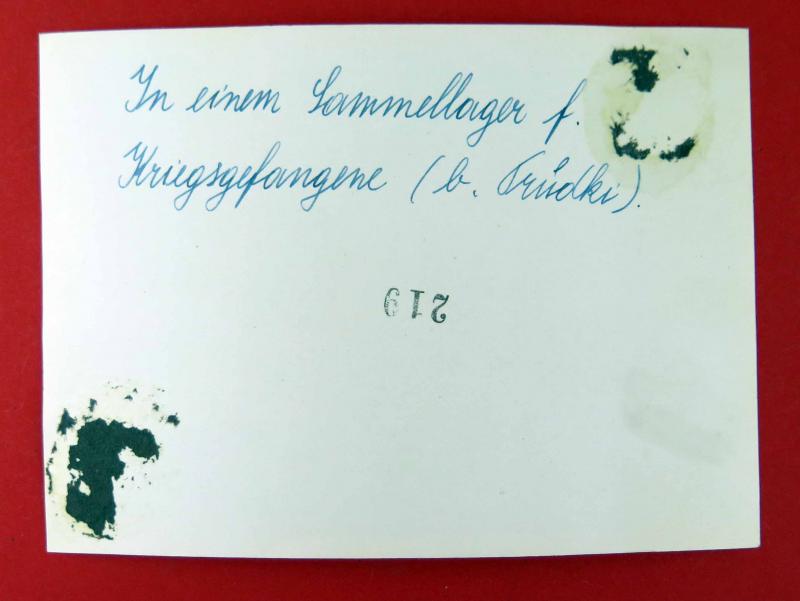 In einem Sammellager f.
Kriegsgefangene (b. Trudki).
219